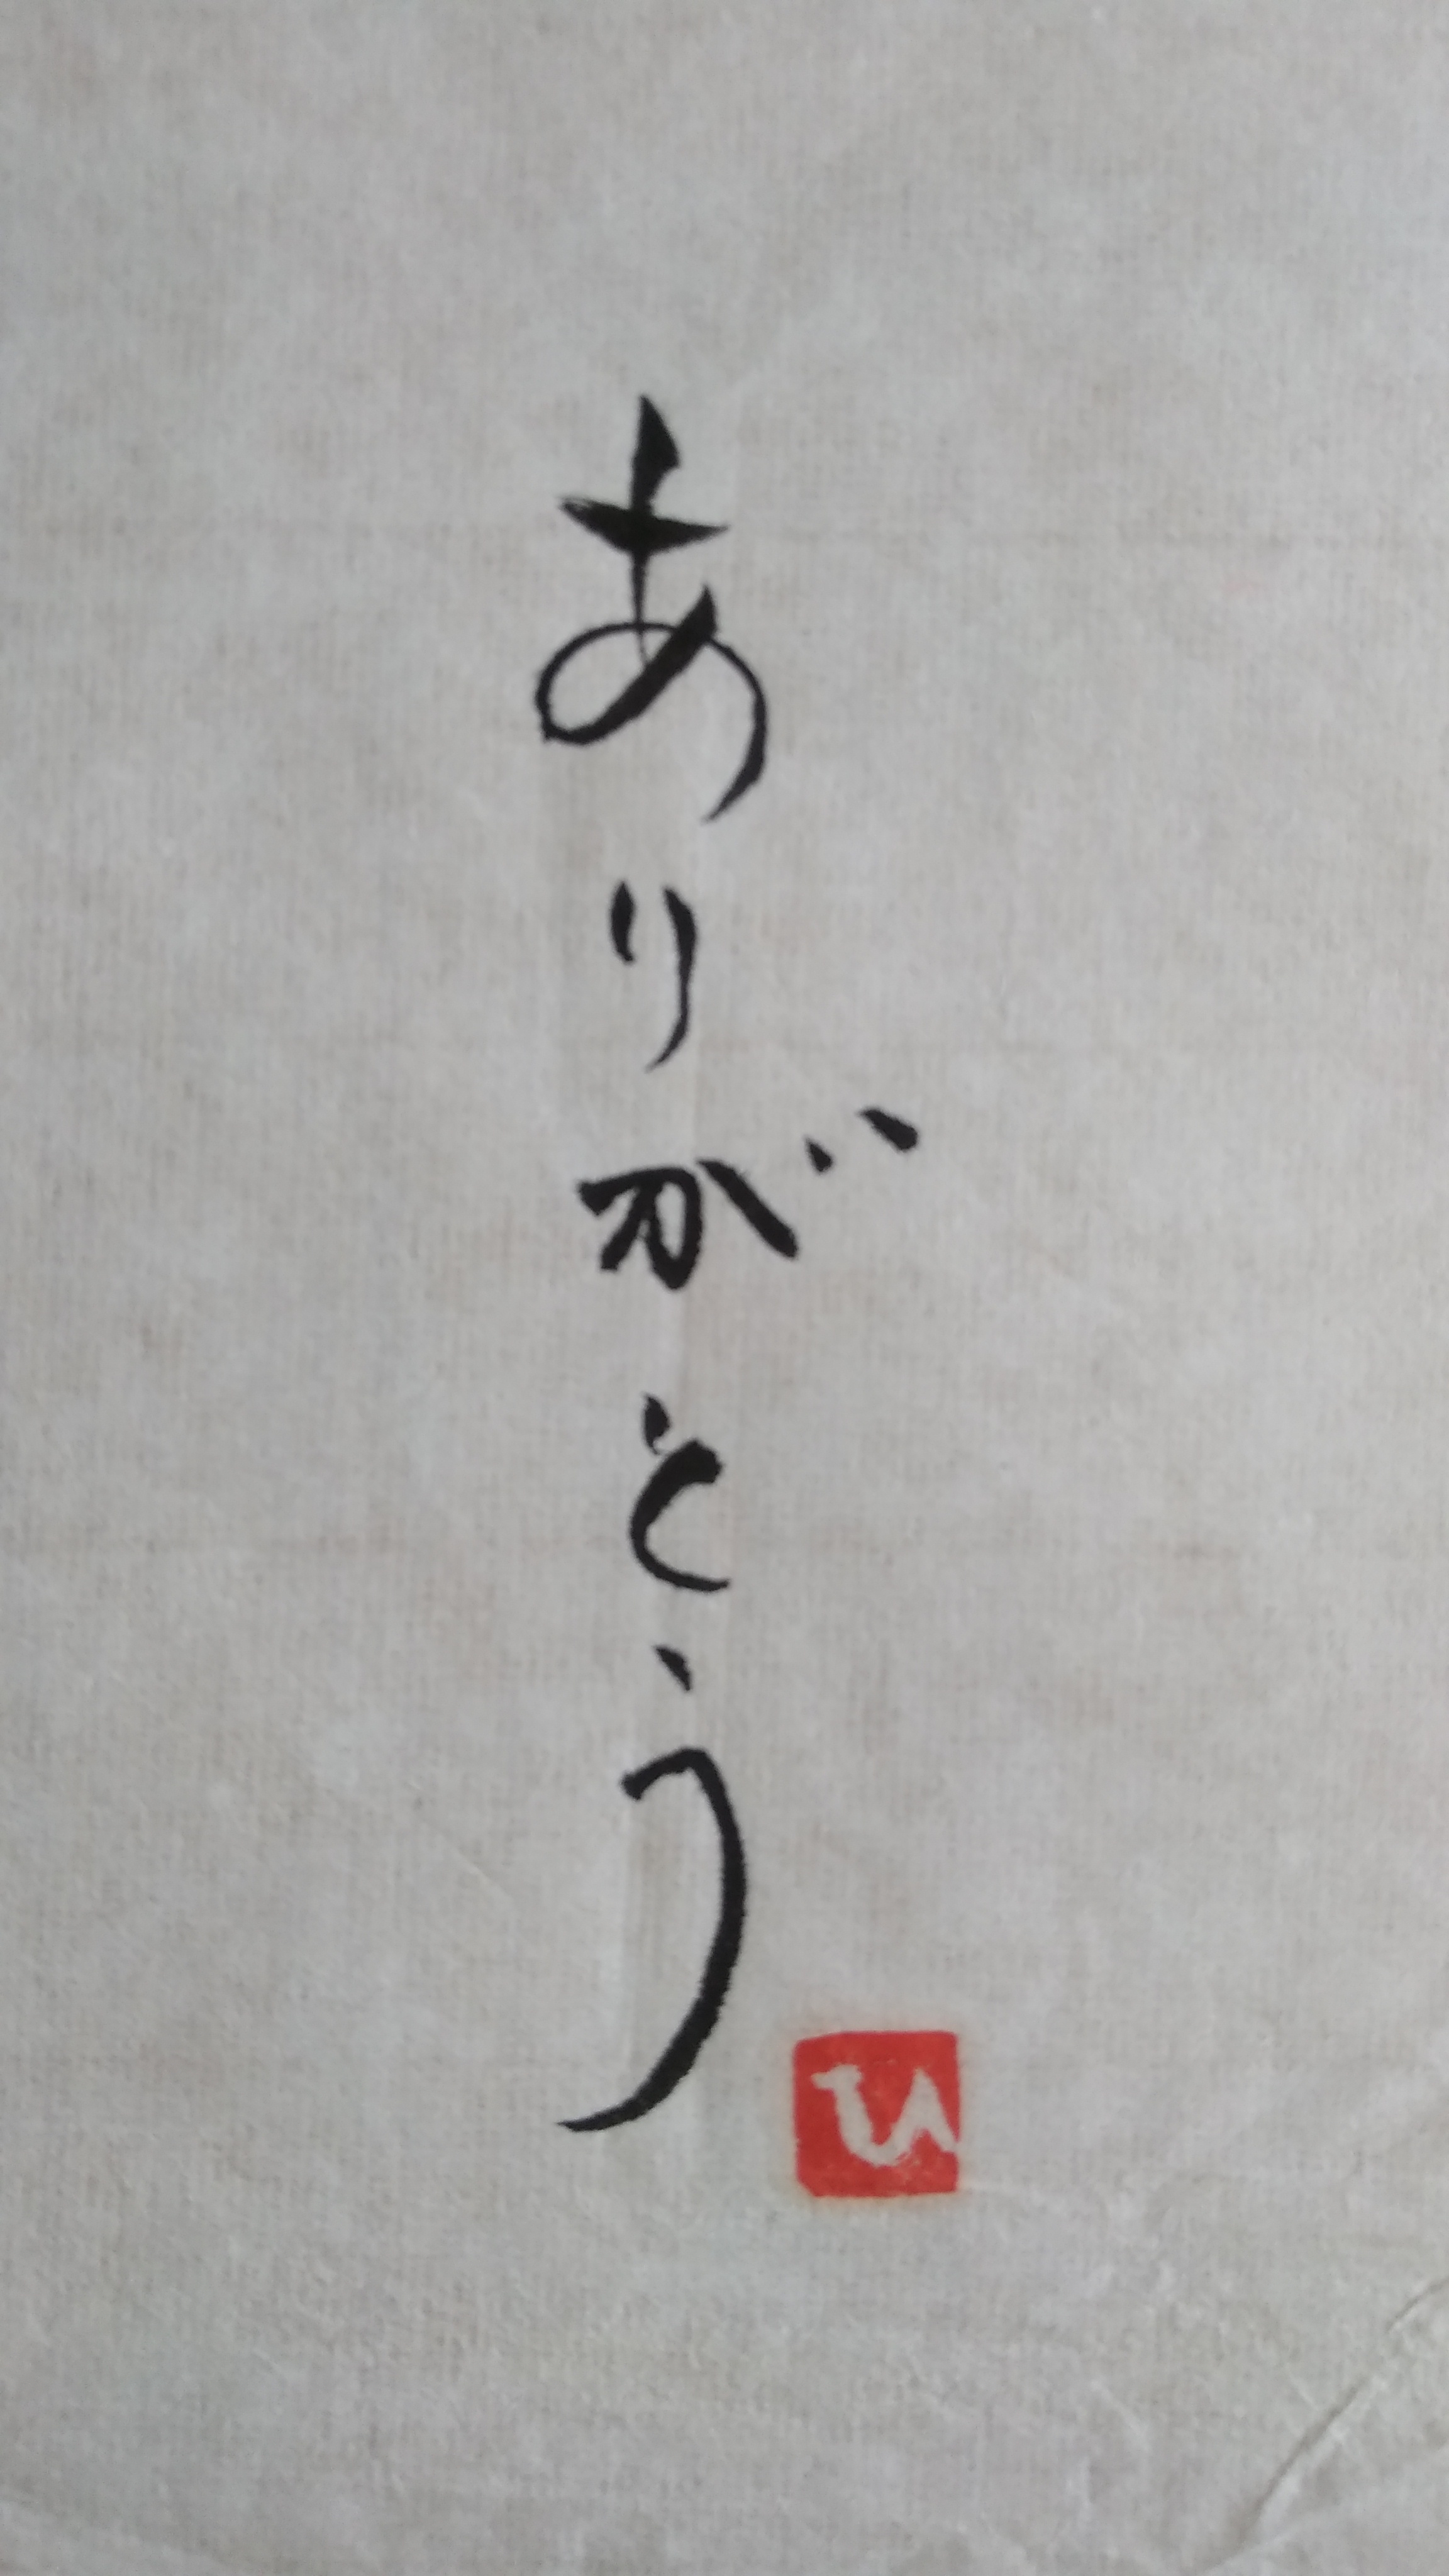 ありがとう
ひ